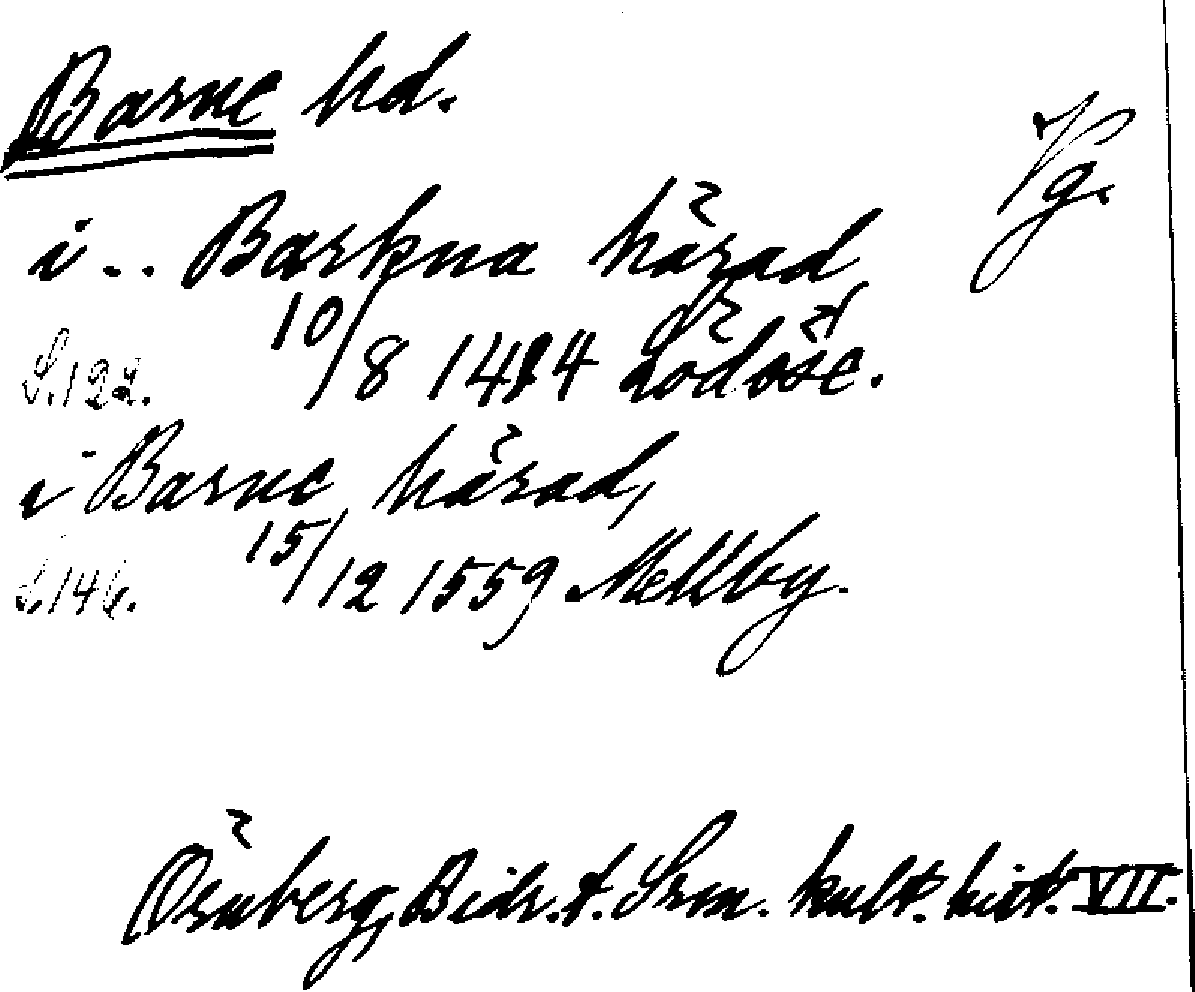 Barne hd.
Vg.
i .. Barkna härad
S. 122. 10/8 1414 Lödöse.
i Barne härad,
S. 146. 15/12 1559 Mellby.
Örnberg, Bidr. t. Srm. kult. hist. VII.